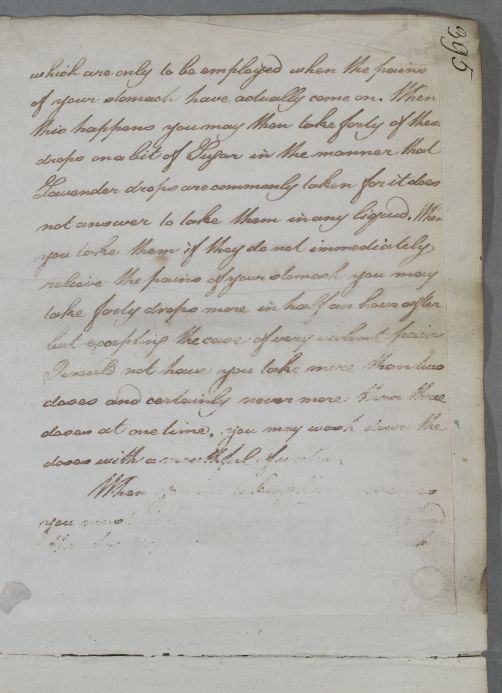 395
which are only to be employed when the pains
of your stomach have actually come on. When
this happens you may then take forty of these
drops on a bit of Sugar in the manner that
Lavender drops are commonly taken for it does
not answer to take them in any liquid. When
you take them if they do not immediately
relieve the pains of your stomach you may
take forty drops more in half an hour after
but excepting the case of very violent pain
I would not have you take more than two
doses and certainly never more than three
doses at one time. you may wash down the
doses with a mouthful of water.
When
you must